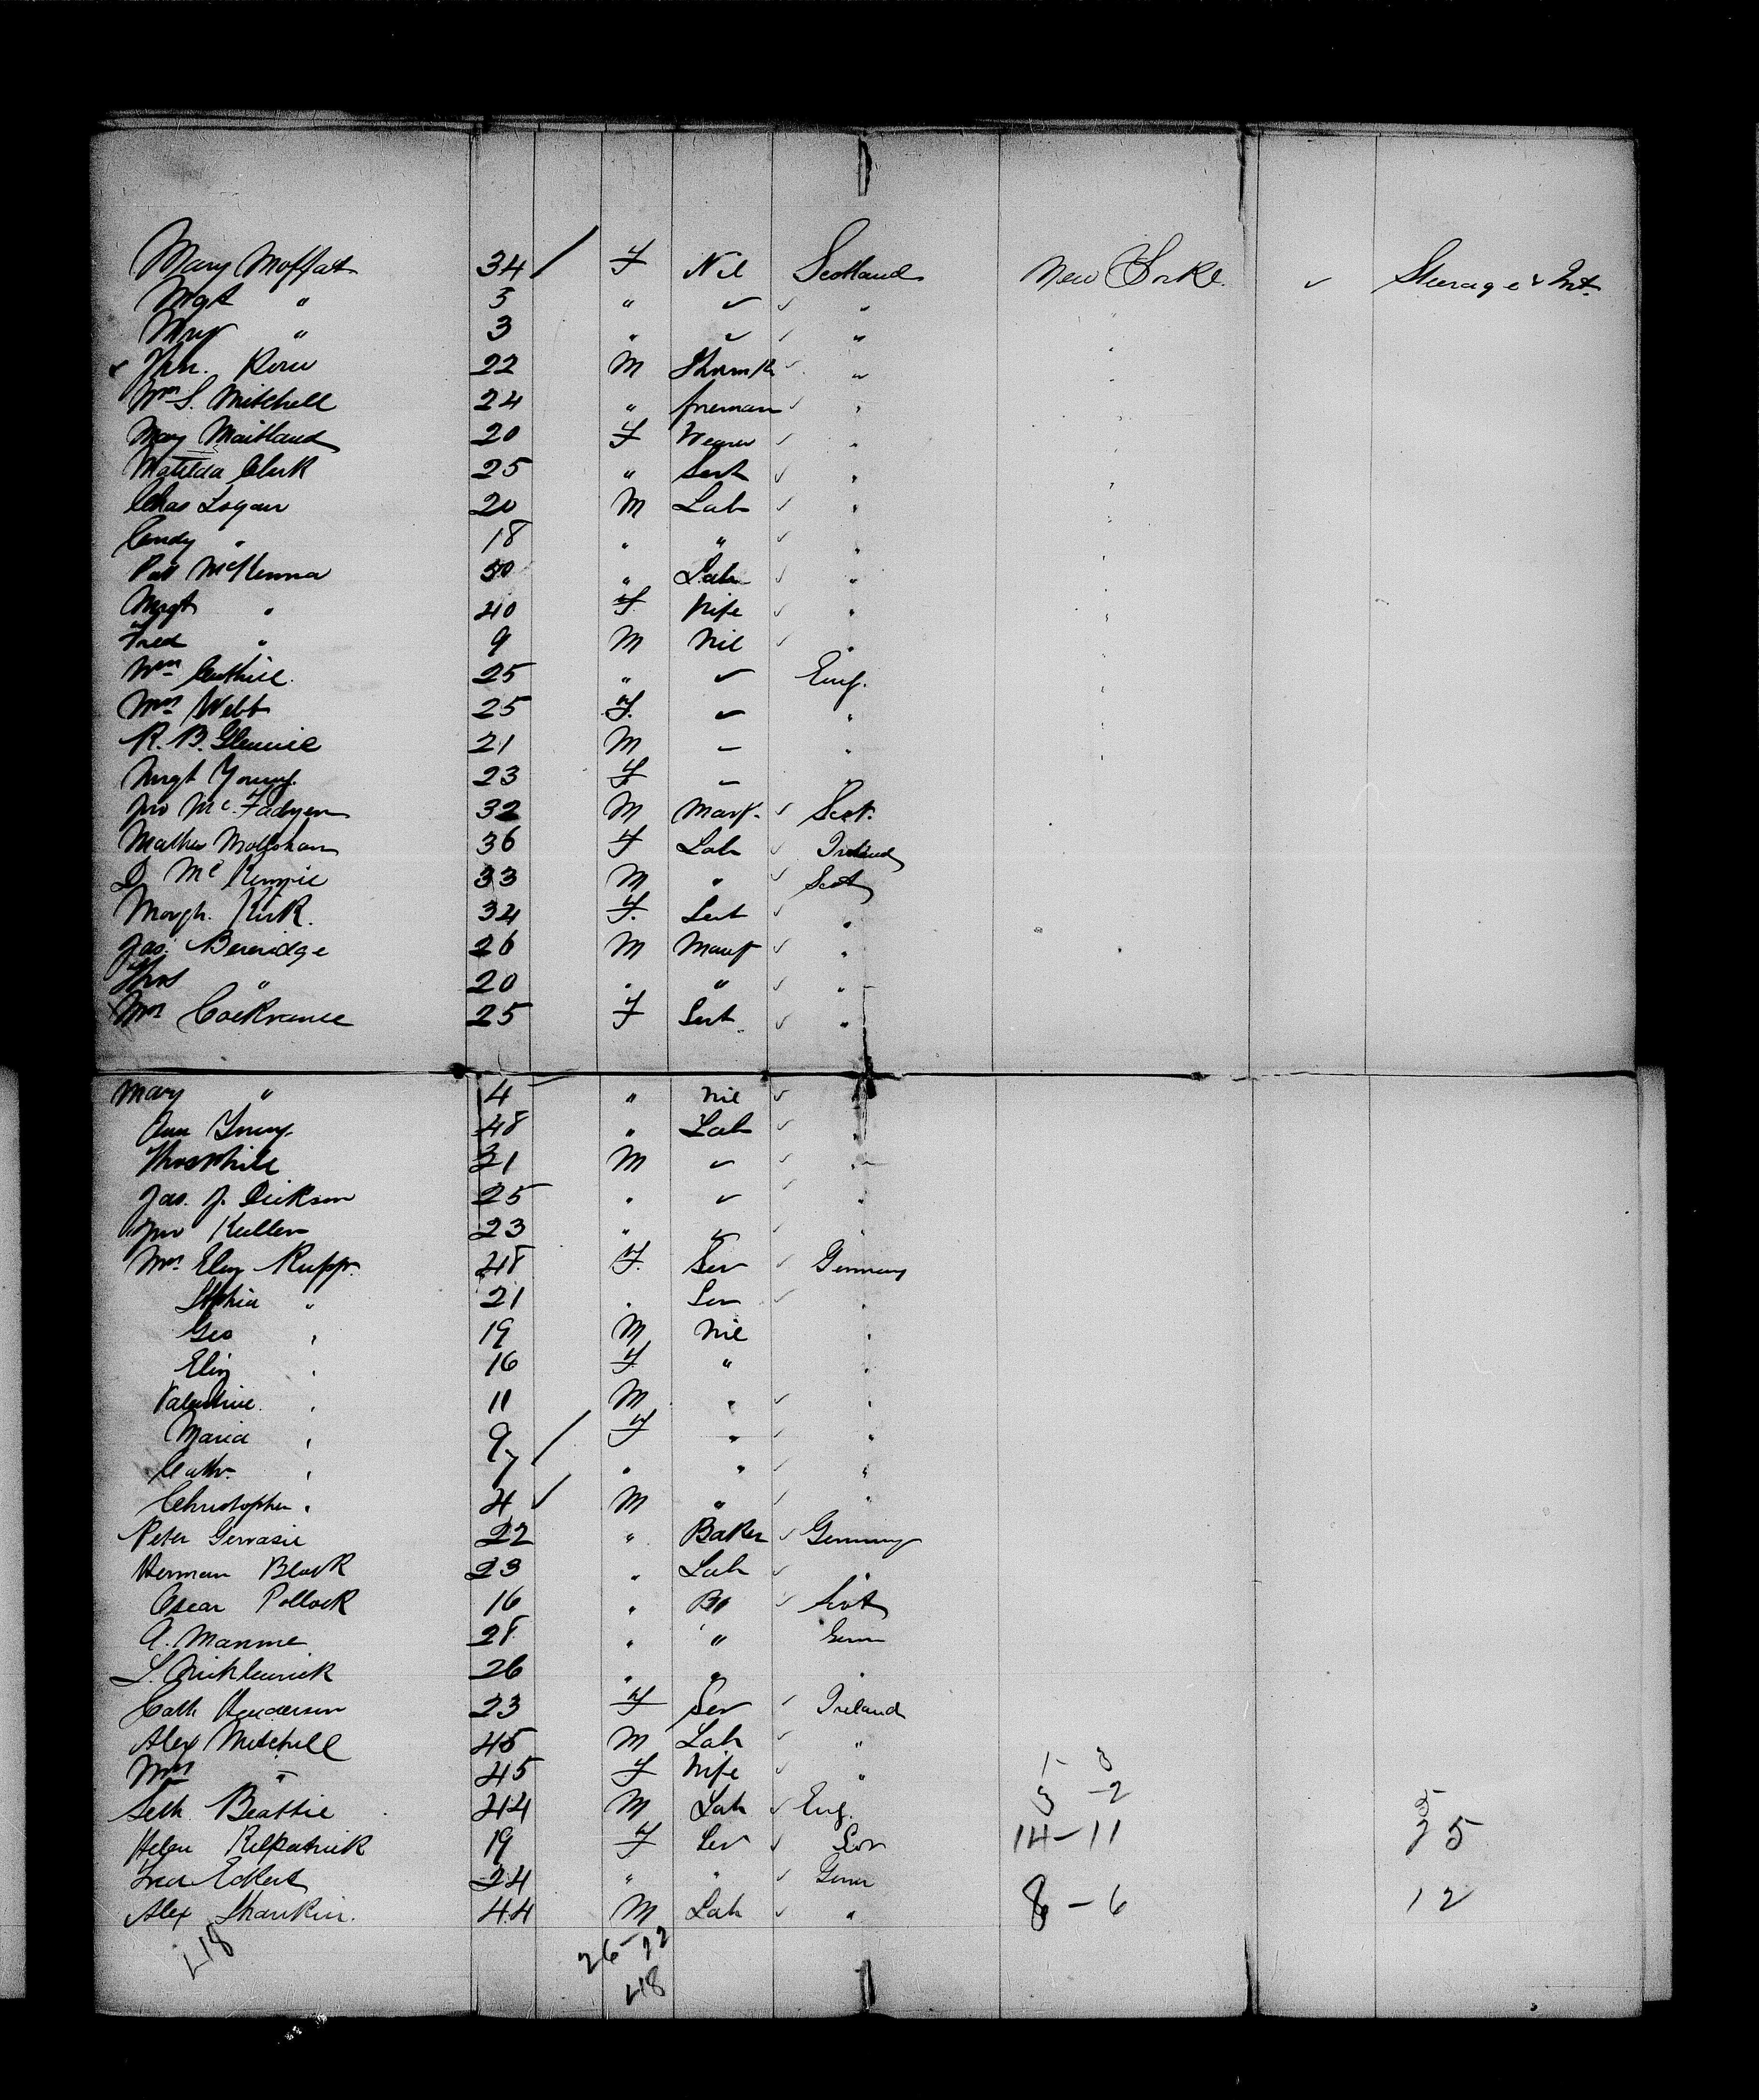 Mary Moffatt 34 / F Nil Scotland New York ✓ Steerage & Int.
Mgt " 5 " ✓ ✓ "
Mry " 3 " ✓ ✓ "
Jhn. 22 M ✓ "
Wm S. Mitchell 24 " ✓ "
Mary Maitland 20 F Weaver ✓ "
Matilda Clark 25 " Sert ✓ "
Chas Logan 20 M Lab ✓ "
" 18 " " ✓ "
Pat McKenna 50 " Lab ✓ "
Mrgt " 40 F Wife ✓ "
Fred " 9 M Nil ✓ "
Wm 25 " ✓ Eng.
Mrs Webb 25 F. ✓ "
R. B. Glennie 21 M "
Mrgt Young. 23 F "
Jno McFadyen 32 M Manf. ✓ Scot.
Mathew 36 F Lab ✓ Ireland
D Mc 33 M " ✓ Scot
Margh. Kirk. 34 F. Sert ✓ "
Jas. Beveridge 26 M Manf ✓ "
Thos " 20 " " ✓ "
Mrs Cockrance 25 F Sert ✓ "
Mary " 4 " Nil ✓ "
Ann Young. 48 " Lab ✓ "
Thos Hill 21 M ✓ ✓ "
Jas. J. Dickson 25 " ✓ ✓ "
Jno 23 " ✓ ✓ "
Mrs Eliz Rupp. 48 F. Ser ✓ Germany
Sophia " 21 " Ser ✓ "
Geo " 19 M Nil "
Eliz " 16 F. " "
Valentine " 11 M " ✓ "
Maria " 9 / F " ✓ "
Cath. " 7 " " ✓ "
Christopher " 4 ✓ M " ✓ "
Peter Gervasie 22 " Baker ✓ Germany
Herman Block 23 " Lab ✓ "
Oscar Pollock 16 " ✓ Scot
A. Manme 28 " " Germ
L. 26 " " "
Cath Henderson 23 F Ser ✓ Ireland
Alex Mitchell 45 M Lab ✓ "
Mrs " 45 F Wife ✓ "
Seth Beattie 44 M Lab ✓ Eng. 3 - 2
Helen Kilpatrick 19 F Ser ✓ 14 - 11 25
Eckert 24 " " ✓ Germ
Alex Shankin. 44 M Lab ✓ " 8 - 6 12
48
26 - 22
48